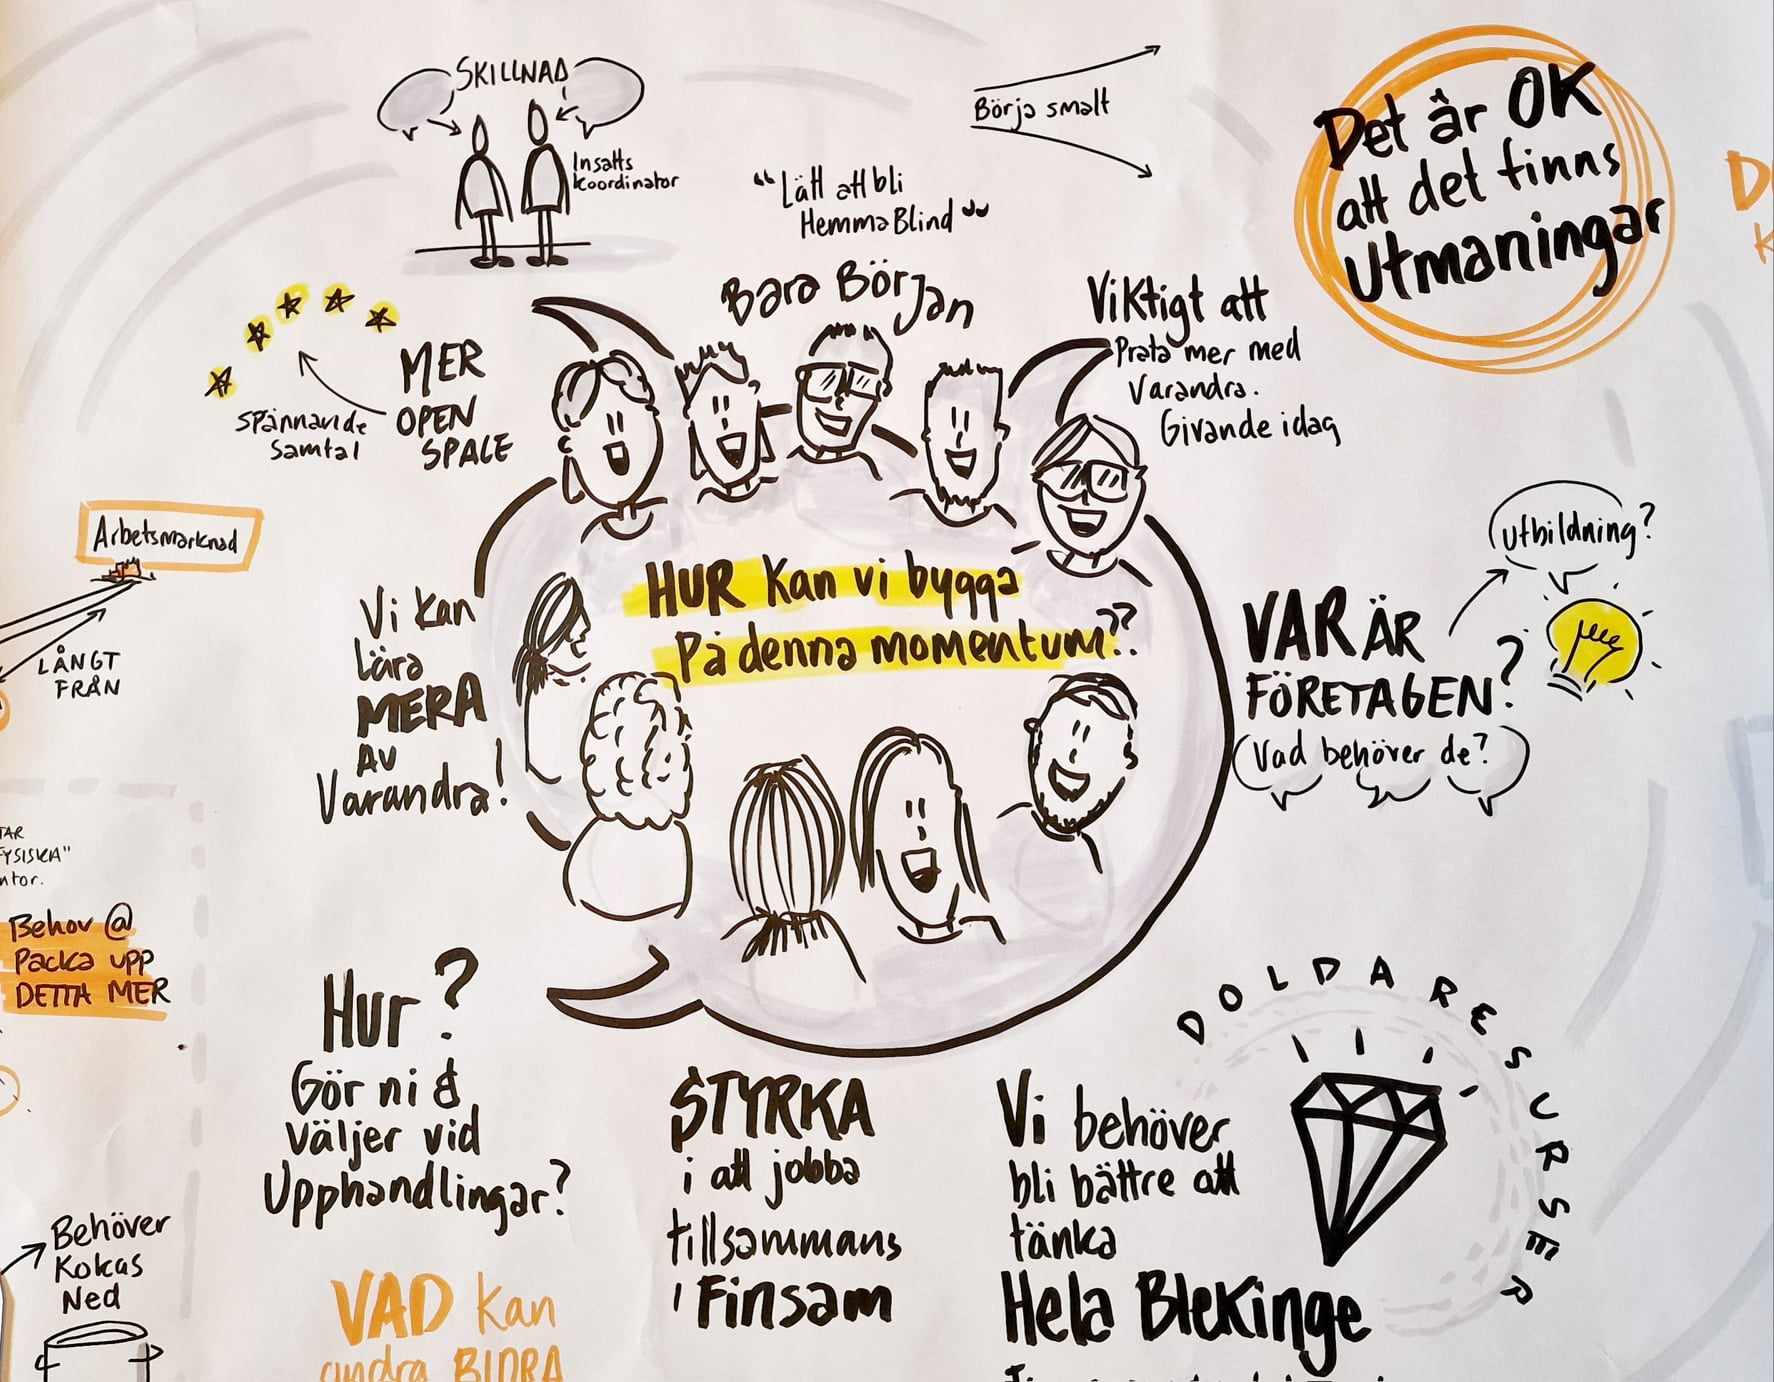 SKILLNAD
Insatts
koordinator
Börja smalt
Det är OK
att det finns
utmaningar
"Lätt att bli
HemmaBlind"
Bara Början
Viktigt att
Prata mer med
varandra.
Givande idag
MER
OPEN
SPALE
spännande
samtal
Arbetsmarknad
LÅNGT
FRÅN
HUR kan vi bygga
på denna momentum??
Vi kan
lära
MERA
AV
Varandra!
utbildning?
VAR ÄR
FÖRETAGEN?
Vad behöver de?
FYSISKA"
Behov @
Packa upp
DETTA MER
Hur?
Gör ni &
väljer vid
Upphandlingar?
STYRKA
i att jobba
tillsammans
i Finsam
Vi behöver
bli bättre att
tänka
Hela Blekinge
DOLDA RESURSER
Behöver
Kokas
Ned
VAD kan
andra BIDRA